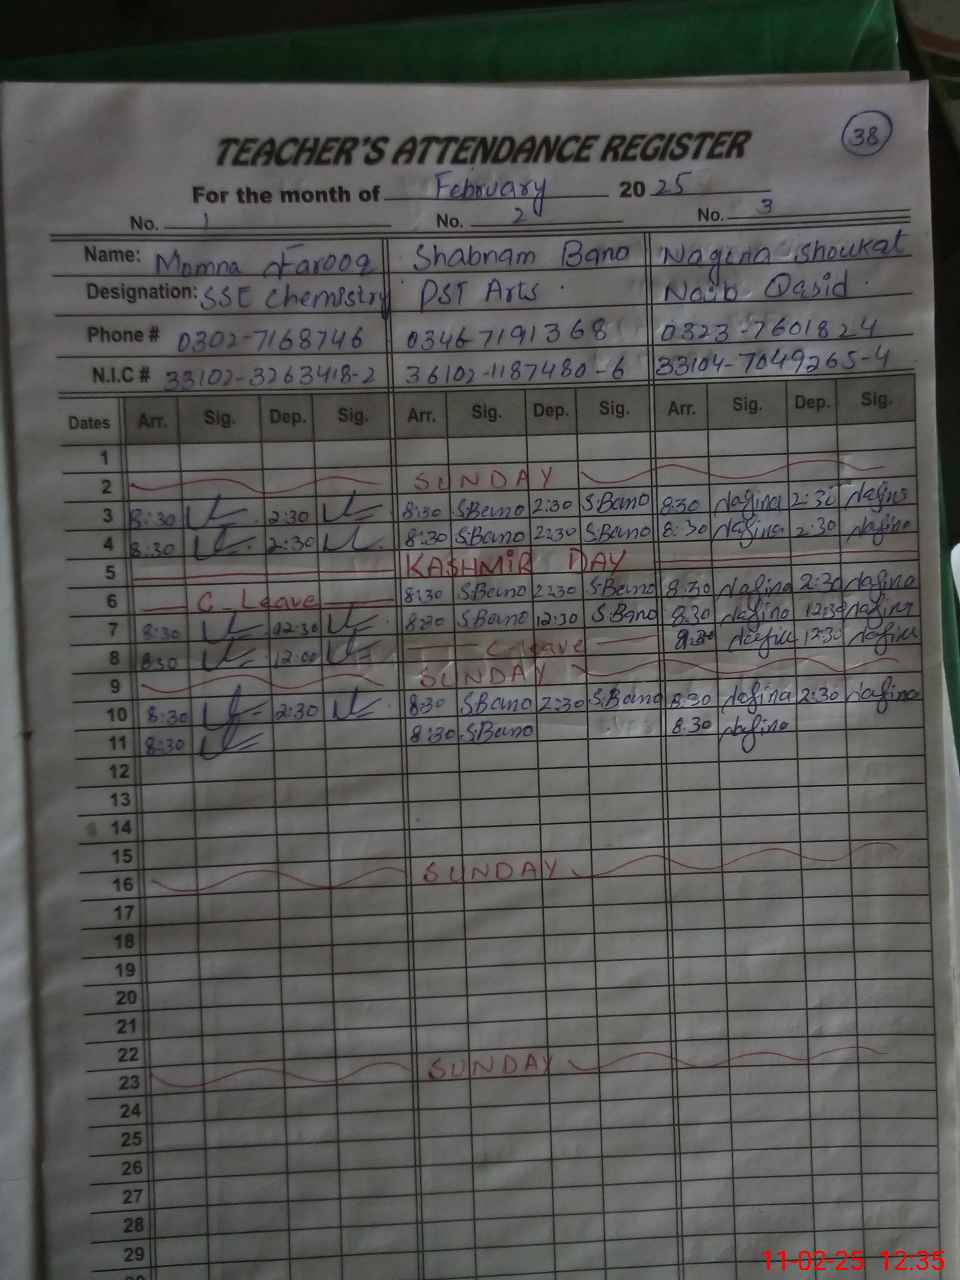 38
TEACHER'S ATTENDANCE REGISTER
For the month of February 2025
No. 1 No. 2 No. 3
Name: Momna Farooq Shabnam Bano Nagina Shoukat
Designation: SSE Chemistry PST Arts Naib Qasid
Phone # 0302-7168746 0346-7191368 0323-7601824
N.I.C # 33102-3263418-2 36102-1187480-6 33104-7049265-4
Dates Arr. Sig. Dep. Sig. Arr. Sig. Dep. Sig. Arr. Sig. Dep. Sig.
1
2 SUNDAY
3 8:30 2:30 8:30 S.Bano 2:30 S.Bano 8:30 Nagina 2:30 Nagina
4 8:30 2:30 8:30 S.Bano 2:30 S.Bano 8:30 Nagina 2:30 Nagina
5 KASHMIR DAY
6 C-Leave 8:30 S.Bano 2:30 S.Bano 8:30 Nagina 2:30 Nagina
7 8:30 12:30 8:30 S.Bano 12:30 S.Bano 8:30 Nagina 12:30 Nagina
8 8:30 12:00 C-leave 8:30 Nagina 12:30 Nagina
9 SUNDAY
10 8:30 2:30 8:30 S.Bano 2:30 S.Bano 8:30 Nagina 2:30 Nagina
11 8:30 8:30 S.Bano 8:30 Nagina
12
13
14
15
16 SUNDAY
17
18
19
20
21
22
23 SUNDAY
24
25
26
27
28
29
11-02-25 12:35